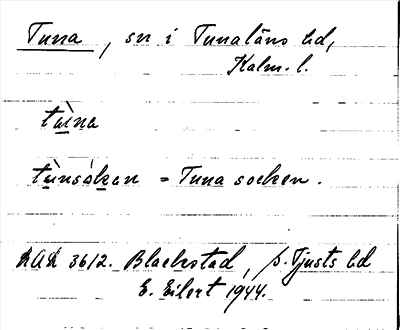 Tuna, sn i Tunaläns hd,
Kalm. l.
tùna
tùnsåkan = Tuna socken.
ULMA 3612. Blackstad, S. Tjusts hd
E. Eilert 1944.